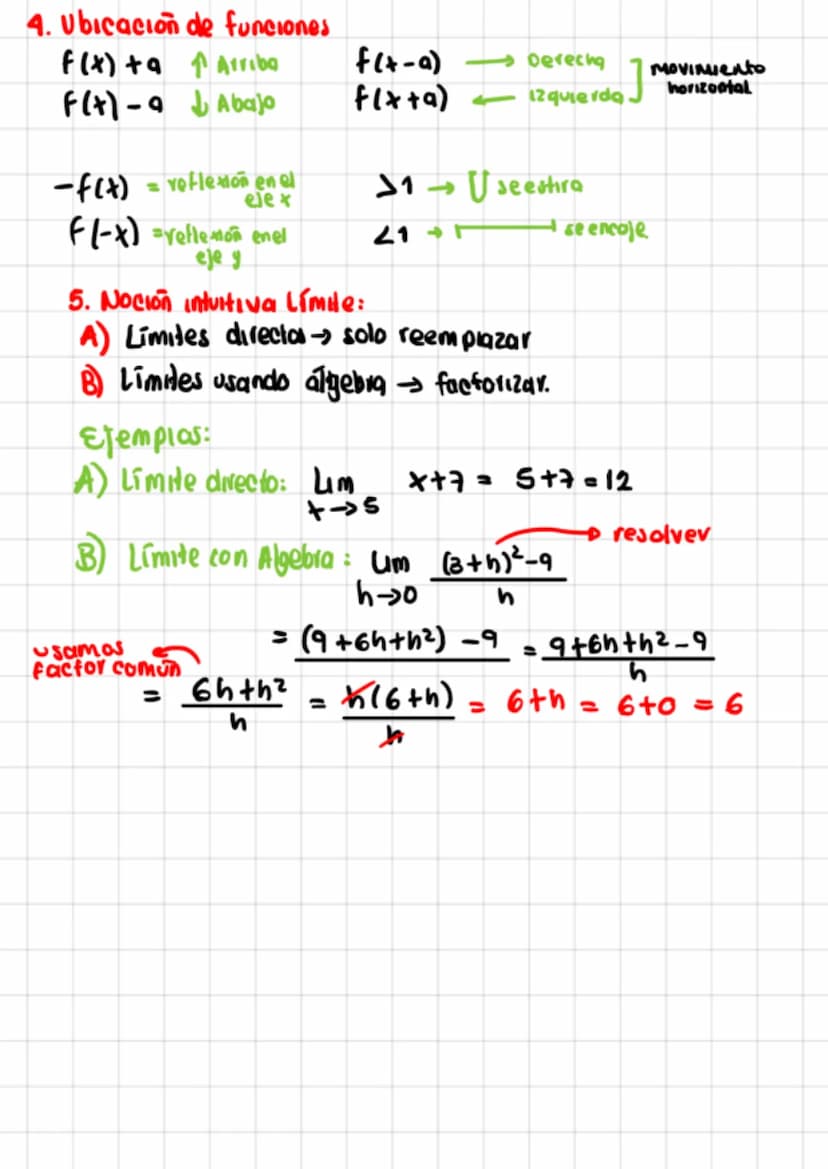 4. Ubicación de funciones
f(x) + a ↑ Arriba f(x-a) → Derecha
f(x) - a ↓ Abajo f(x+a) ← Izquierda
movimiento horizontal
-f(x) = reflexión en el eje x >1 → U se estira
f(-x) = reflexión en el eje y <1 → se encoje
5. Noción intuitiva Límite:
A) Límites directos → solo reemplazar
B) Límites usando álgebra → factorizar.
Ejemplos:
A) Límite directo: Lim x→5 x+7 = 5+7 = 12
B) Límite con Algebra: Lim h→0 (3+h)²-9 / h → resolver
= (9+6h+h²) -9 = 9+6h+h²-9 / h
usamos factor común
= 6h+h² / h = h(6+h) / h = 6+h = 6+0 = 6